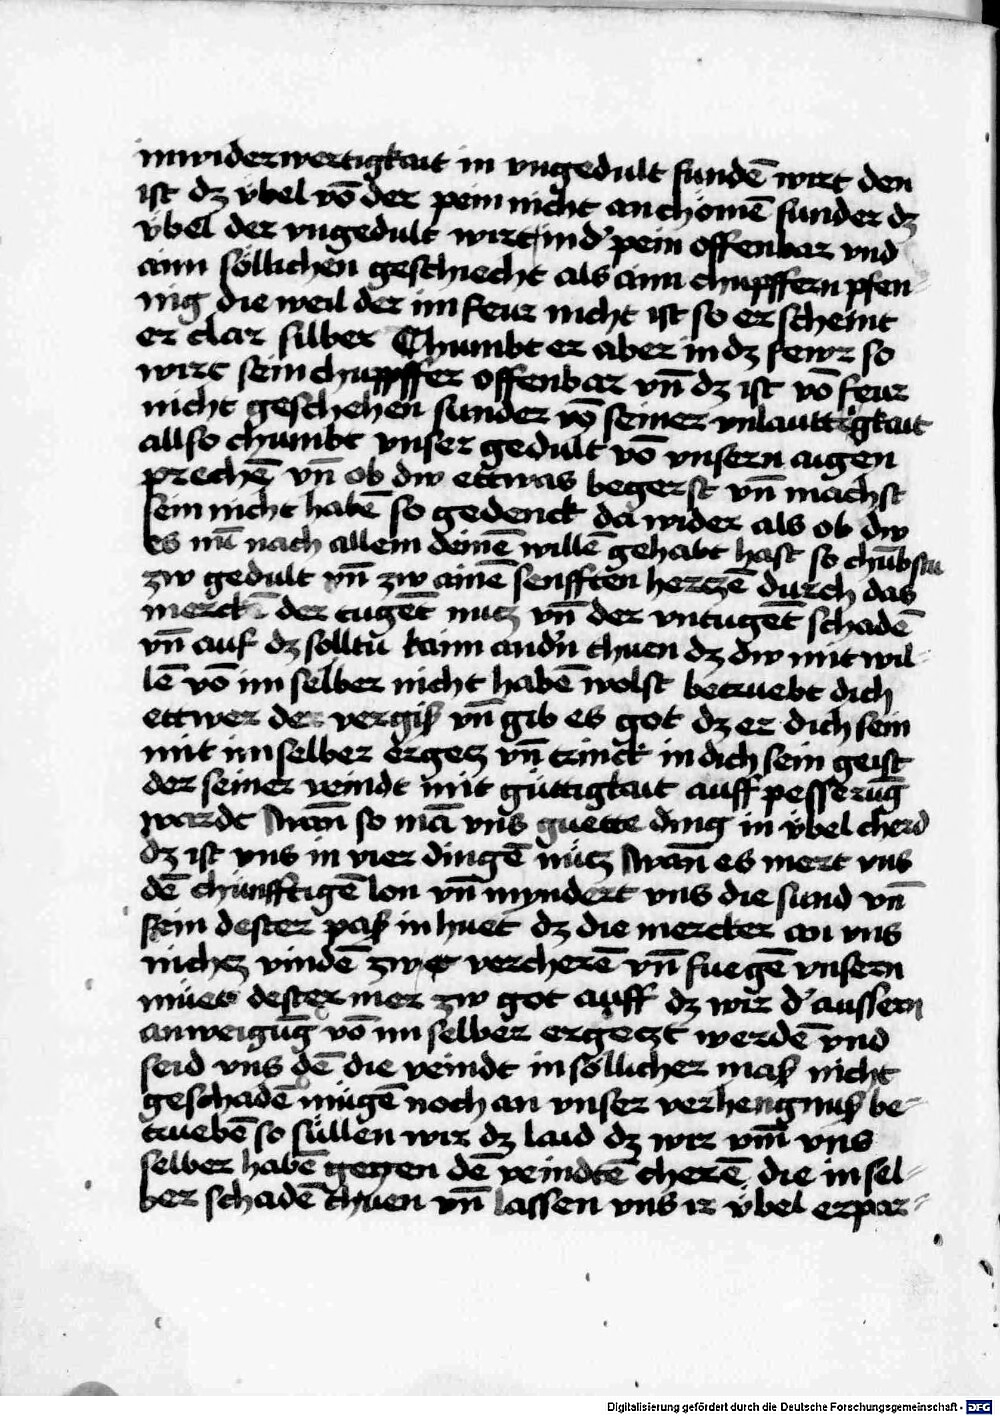 inwiderwertigkait in vngedult fundē wirt den
ist dz v̈bel vō der pein nicht an chömē sunder dz
v̈bel der vngedult wirt in d' pein offenbar vnd
aim söllichen geschiecht als aim chupffern pfen-
nig die weil der im feur nicht ist so er scheint
er clar silber Chumbt er aber in dz fewr so
wirt sein chupffer offenbar vn̄ dz ist vō feur
nicht geschehen sunder vō seiner vnlauttrigkait
allso chumbt vnser gedult vō vnsern augen
prechē vn̄ ob dw ettwas begerst vn̄ machst
sein nicht habē so gedenck da wider als ob dw
es nu̅ nach allem deinē willē gehabt hast so chu̅bstu
zw gedult vn̄ zw ainē senfften herczē durch das
merckē der tugēt nucz vn̄ der vntugēt schadē
vn̄ auf dz solltu kaim and'n thuen dz dw mit wil-
lē vō im selber nicht habē wolst betruebt dich
ettwer des vergiß vn̄ gib es got dz er dich sein
mit im selber ergecz vn̄ trinck in dich sein geist
der seiner veindt mit güttigkait auff pesseru̅g
wardt Wan̄ so mā vns guette ding in v̈bel cherd
dz ist vns in vier dingē nücz Wan̄ es mert vns
dē chünfftigē lon vn̄ myndert vns die sund vn̄
sein dester paß in huet dz die mercker an vns
nichcz vindē zw vercherē vn̄ fuegē vnsern
müet dester mer zw got auff dz wir d' aussern
anweigu̅g vō im selber ergeczt werdē vnd
seid vns dē die veindt in söllicher maß nicht
geschadē mügē noch an vnser verhengnuß be-
truebē so süllen wir dz laid dz wir vm̄ vns
selber habē gegen dē veindtē cherē die in sel-
ber schadē thuen vn̄ lassen vns ir v̈bel erpar-
Digitalisierung gefördert durch die Deutsche Forschungsgemeinschaft - DFG